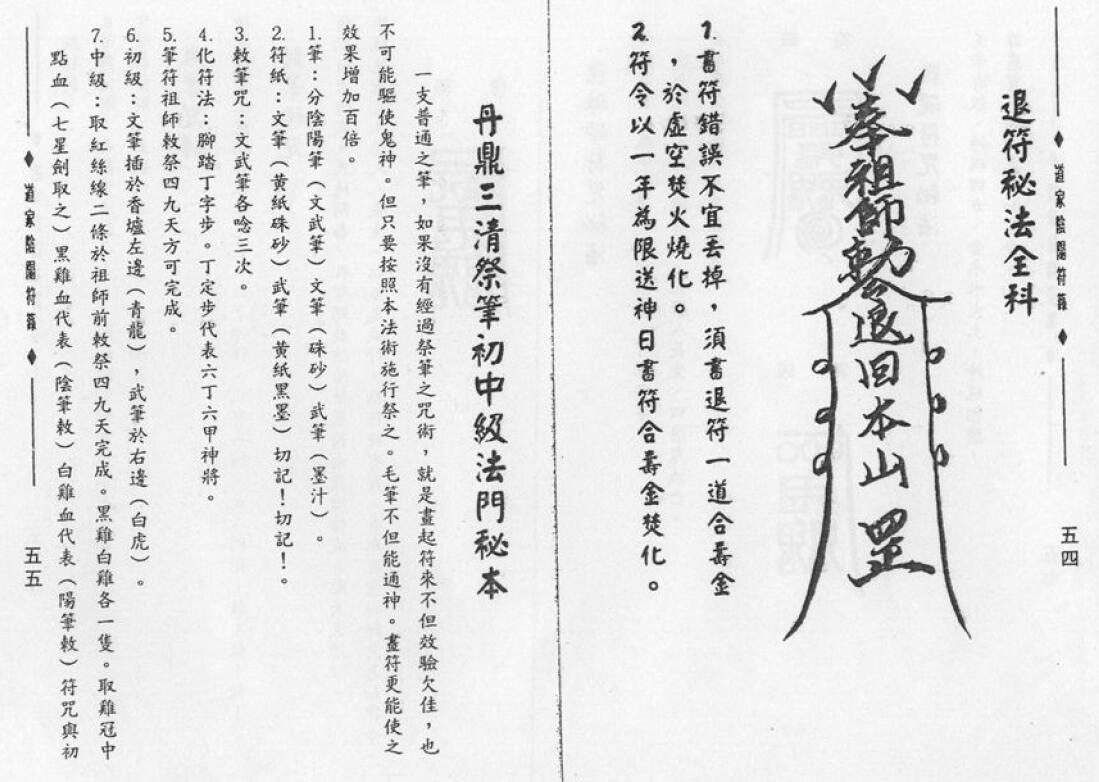 道家陰陽符籙
五四
退符秘法全科
奉祖師勅退回本山罡
1.書符錯誤不宜丟掉，須書退符一道合壽金
，於虛空焚火燒化。
2.符令以一年為限送神日書符合壽金焚化。
丹鼎三清祭筆初中級法門秘本
一支普通之筆，如果沒有經過祭筆之咒術，就是畫起符來不但效驗欠佳，也
不可能驅使鬼神。但只要按照本法術施行祭之。毛筆不但能通神。畫符更能使之
效果增加百倍。
1.筆：分陰陽筆（文武筆）文筆（硃砂）武筆（墨汁）。
2.符紙：文筆（黃紙硃砂）武筆（黃紙黑墨）切記！切記！。
3.敕筆咒：文武筆各唸三次。
4.化符法：腳踏丁字步。丁定步代表六丁六甲神將。
5.筆符祖師敕祭四九天方可完成。
6.初級：文筆插於香爐左邊（青龍），武筆於右邊（白虎）。
7.中級：取紅絲線二條於祖師前敕祭四九天完成。黑雞白雞各一隻。取雞冠中
點血（七星劍取之）黑雞血代表（陰筆敕）白雞血代表（陽筆敕）符咒與初
道家陰陽符籙
五五